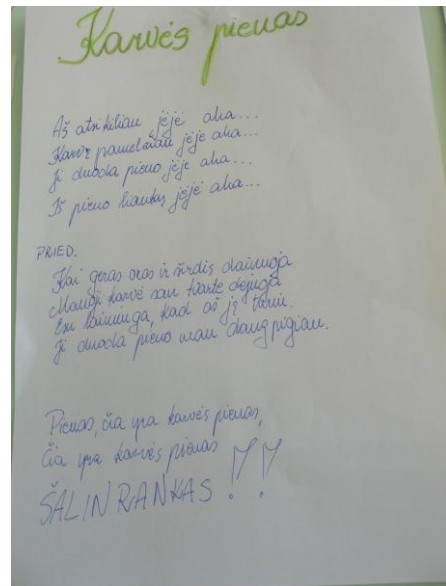 Karvės pienas
Aš atsikėliau jėjė aha...
Karvę pamelžiau jėjė aha...
Ji duoda pieno jėjė aha...
Iš pieno jėjė aha...
PRIED.
Kai geras oras ir širdis dainuoja
Mano karvė san tvarte dejuoja
Esu laiminga, kad aš ją turiu.
Ji duoda pieno man daug pigiau.
Pienas, čia yra karvės pienas,
Čia yra karvės pienas
ŠALIN RANKAS!!